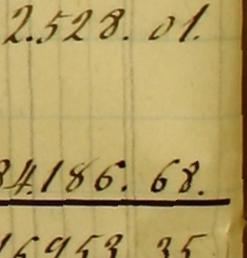 2.528. 01.
84.186. 68.
16953 35